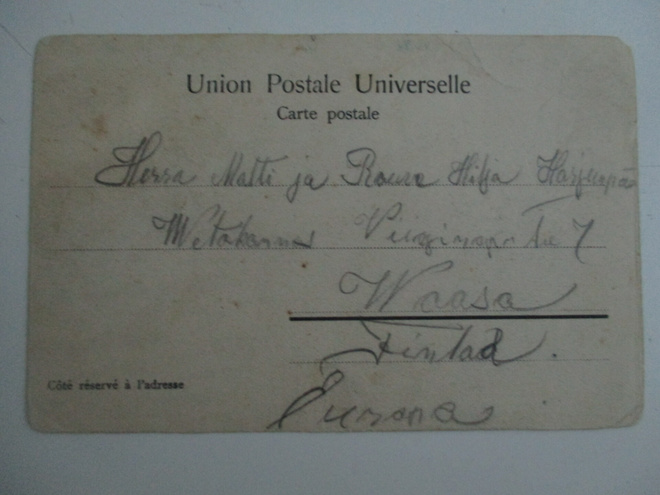 Union Postale Universelle
Carte postale
Herra Matti ja Rouva Hilja Harjunpää
7
Waasa
Finlad.
Côté réservé à l'adresse
Europa